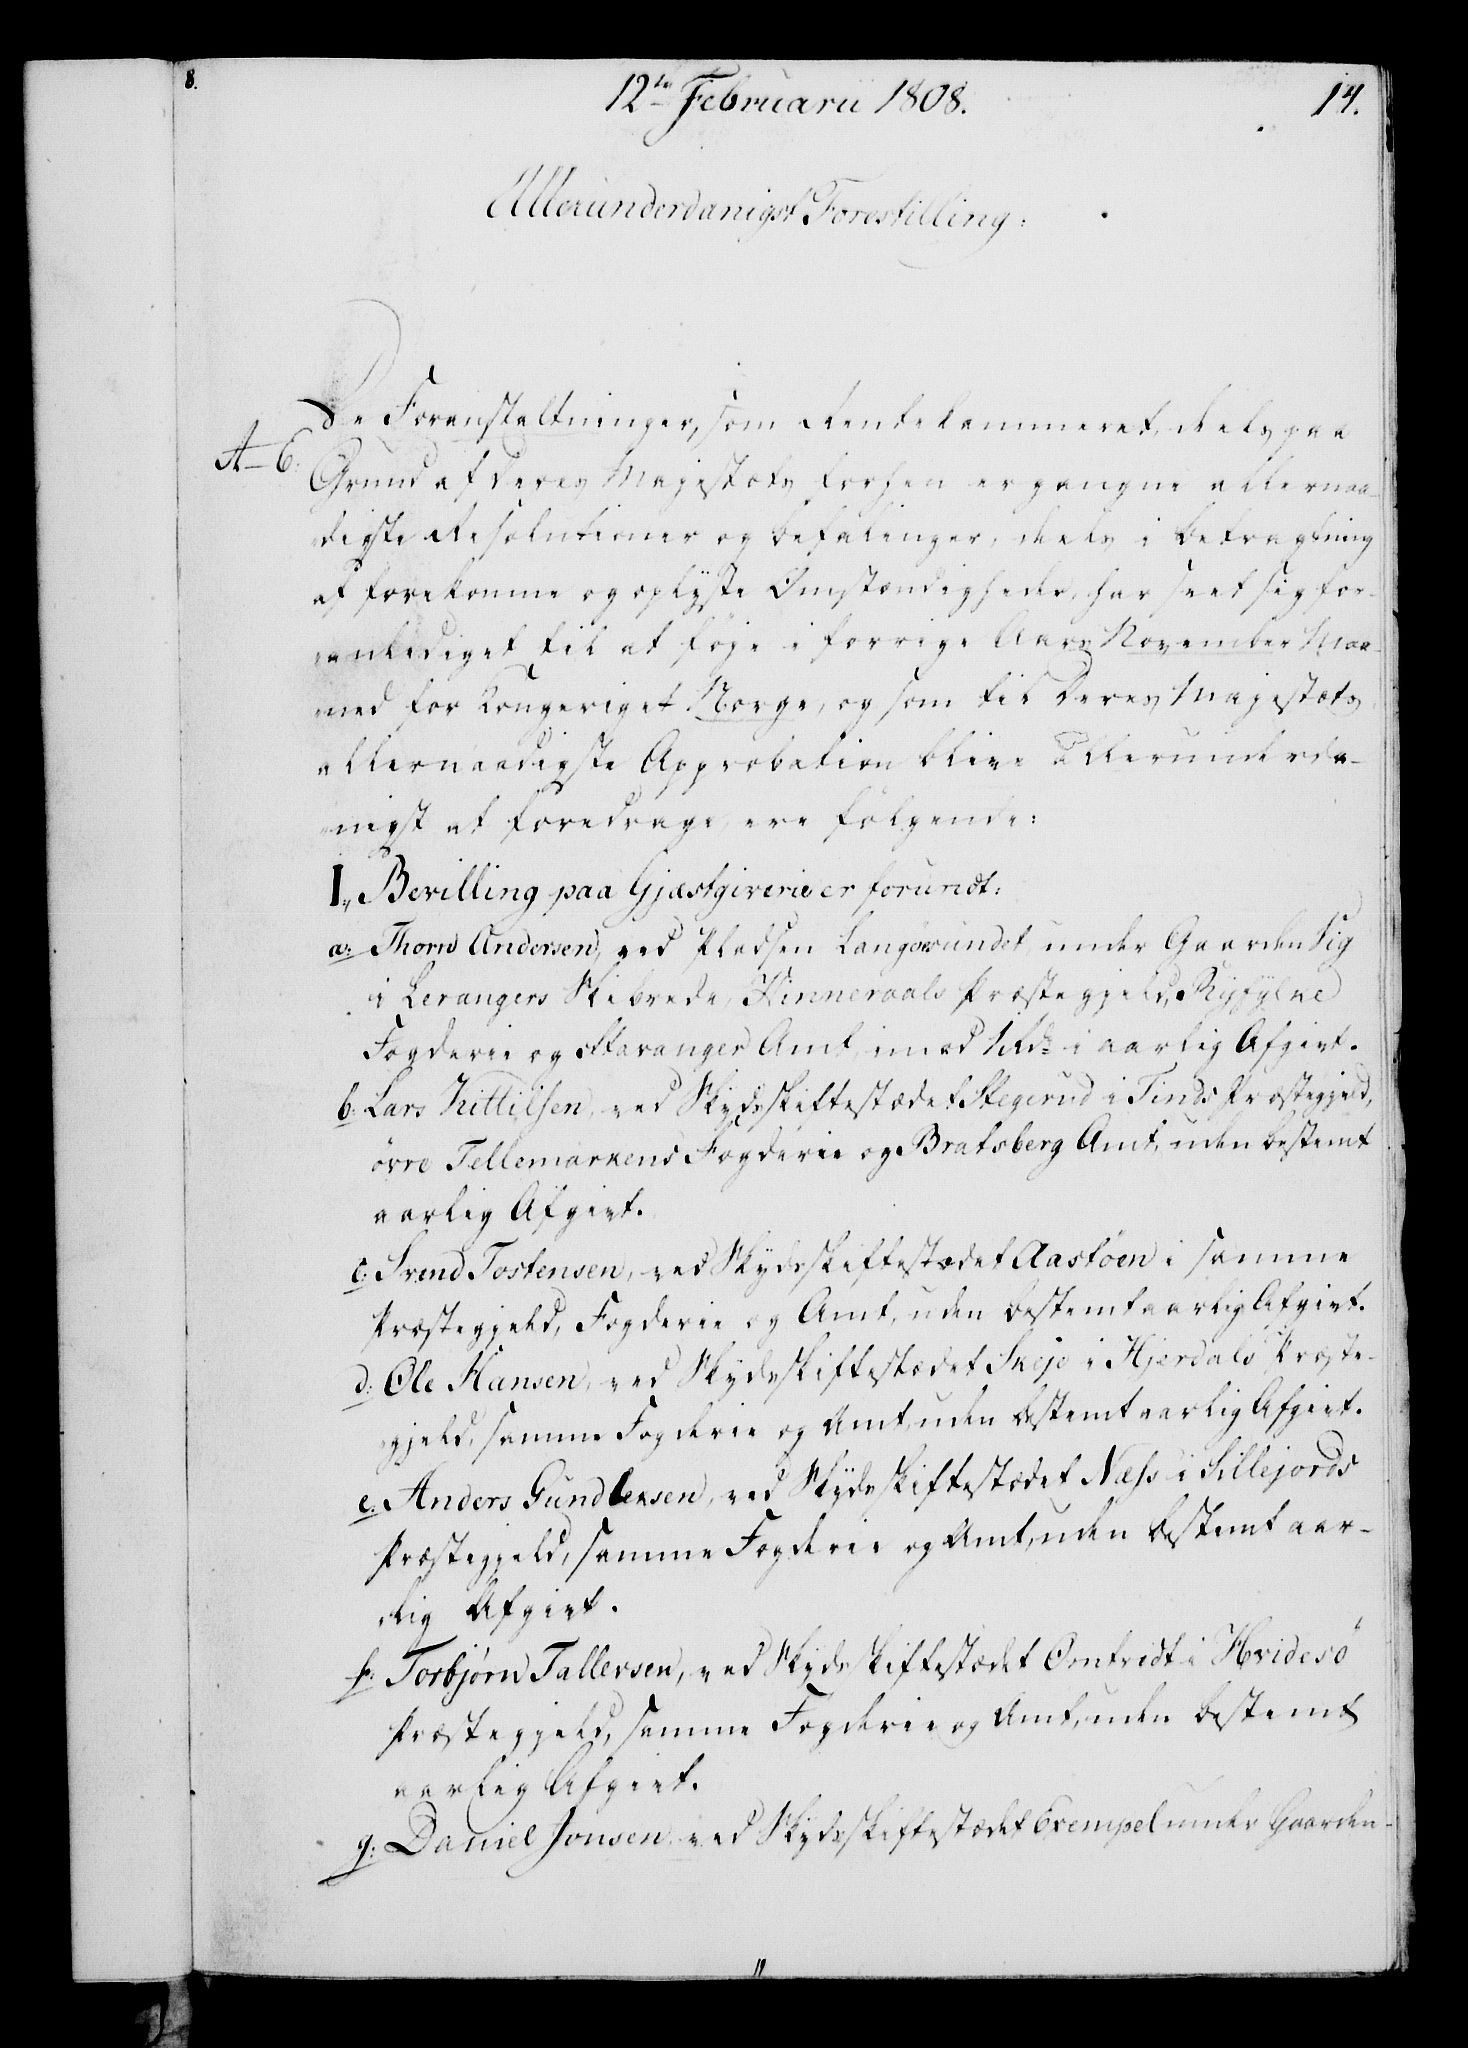 8.
12te Februarii 1808.
14.
Allerunderdanigst Forestilling:
A–C:
De Foranstaltninger, som Rentekammeret, deels paa
Grund af Deres Majestæts forhen ergangne allernaa-
digste Resolutioner og Befalinger, deels i Betragtning
af forekomne og oplyste Omstændigheder, har seet sig for-
anlediget til at føje i forrige Aars November Maa-
ned for Kongeriget Norge, og som til Deres Majestæts
allernaadigste Approbation blive allerunderda-
nigst at foredrage, ere følgende:
I„ Bevilling paa Gjæstgiverier forundt:
a: Thorn Andersen, ved Pladsen Langesundet under Gaarden Sig
i Lerangers Skibrede, Hinneraals Præstegjeld, Ryfylke
Fogderie og Stavanger Amt, imod 1 Rd: i aarlig Afgivt.
b: Lars Kittilsen, ved Skydsskiftestædet Stegerud i Tinds Præstegjeld,
övre Tellemarkens Fogderie og Bratsberg Amt, uden bestemt
aarlig Afgivt.
c: Svend Tostensen, ved Skydsskiftestædet Aastöen i samme
Præstegjeld, Fogderie og Amt, uden bestemt aarlig Afgivt.
d: Ole Hansen, ved Skydsskiftestædet Skeje i Hjerdals Præste-
gjeld, samme Fogderie og Amt, uden bestemt aarlig Afgivt.
e: Anders Gundleksen, ved Skydsskiftestædet Næss i Sillejords
Præstegjeld, samme Fogderie og Amt, uden bestemt aar-
lig Afgivt.
f: Torbjörn Tallevsen, ved Skydsskiftestædet Omtvidt i Hvidesö
Præstegjeld, samme Fogderie og Amt, uden bestemt
aarlig Afgivt.
g: Daniel Jonsen ved Skydsskiftestædet Exempel under Gaarden